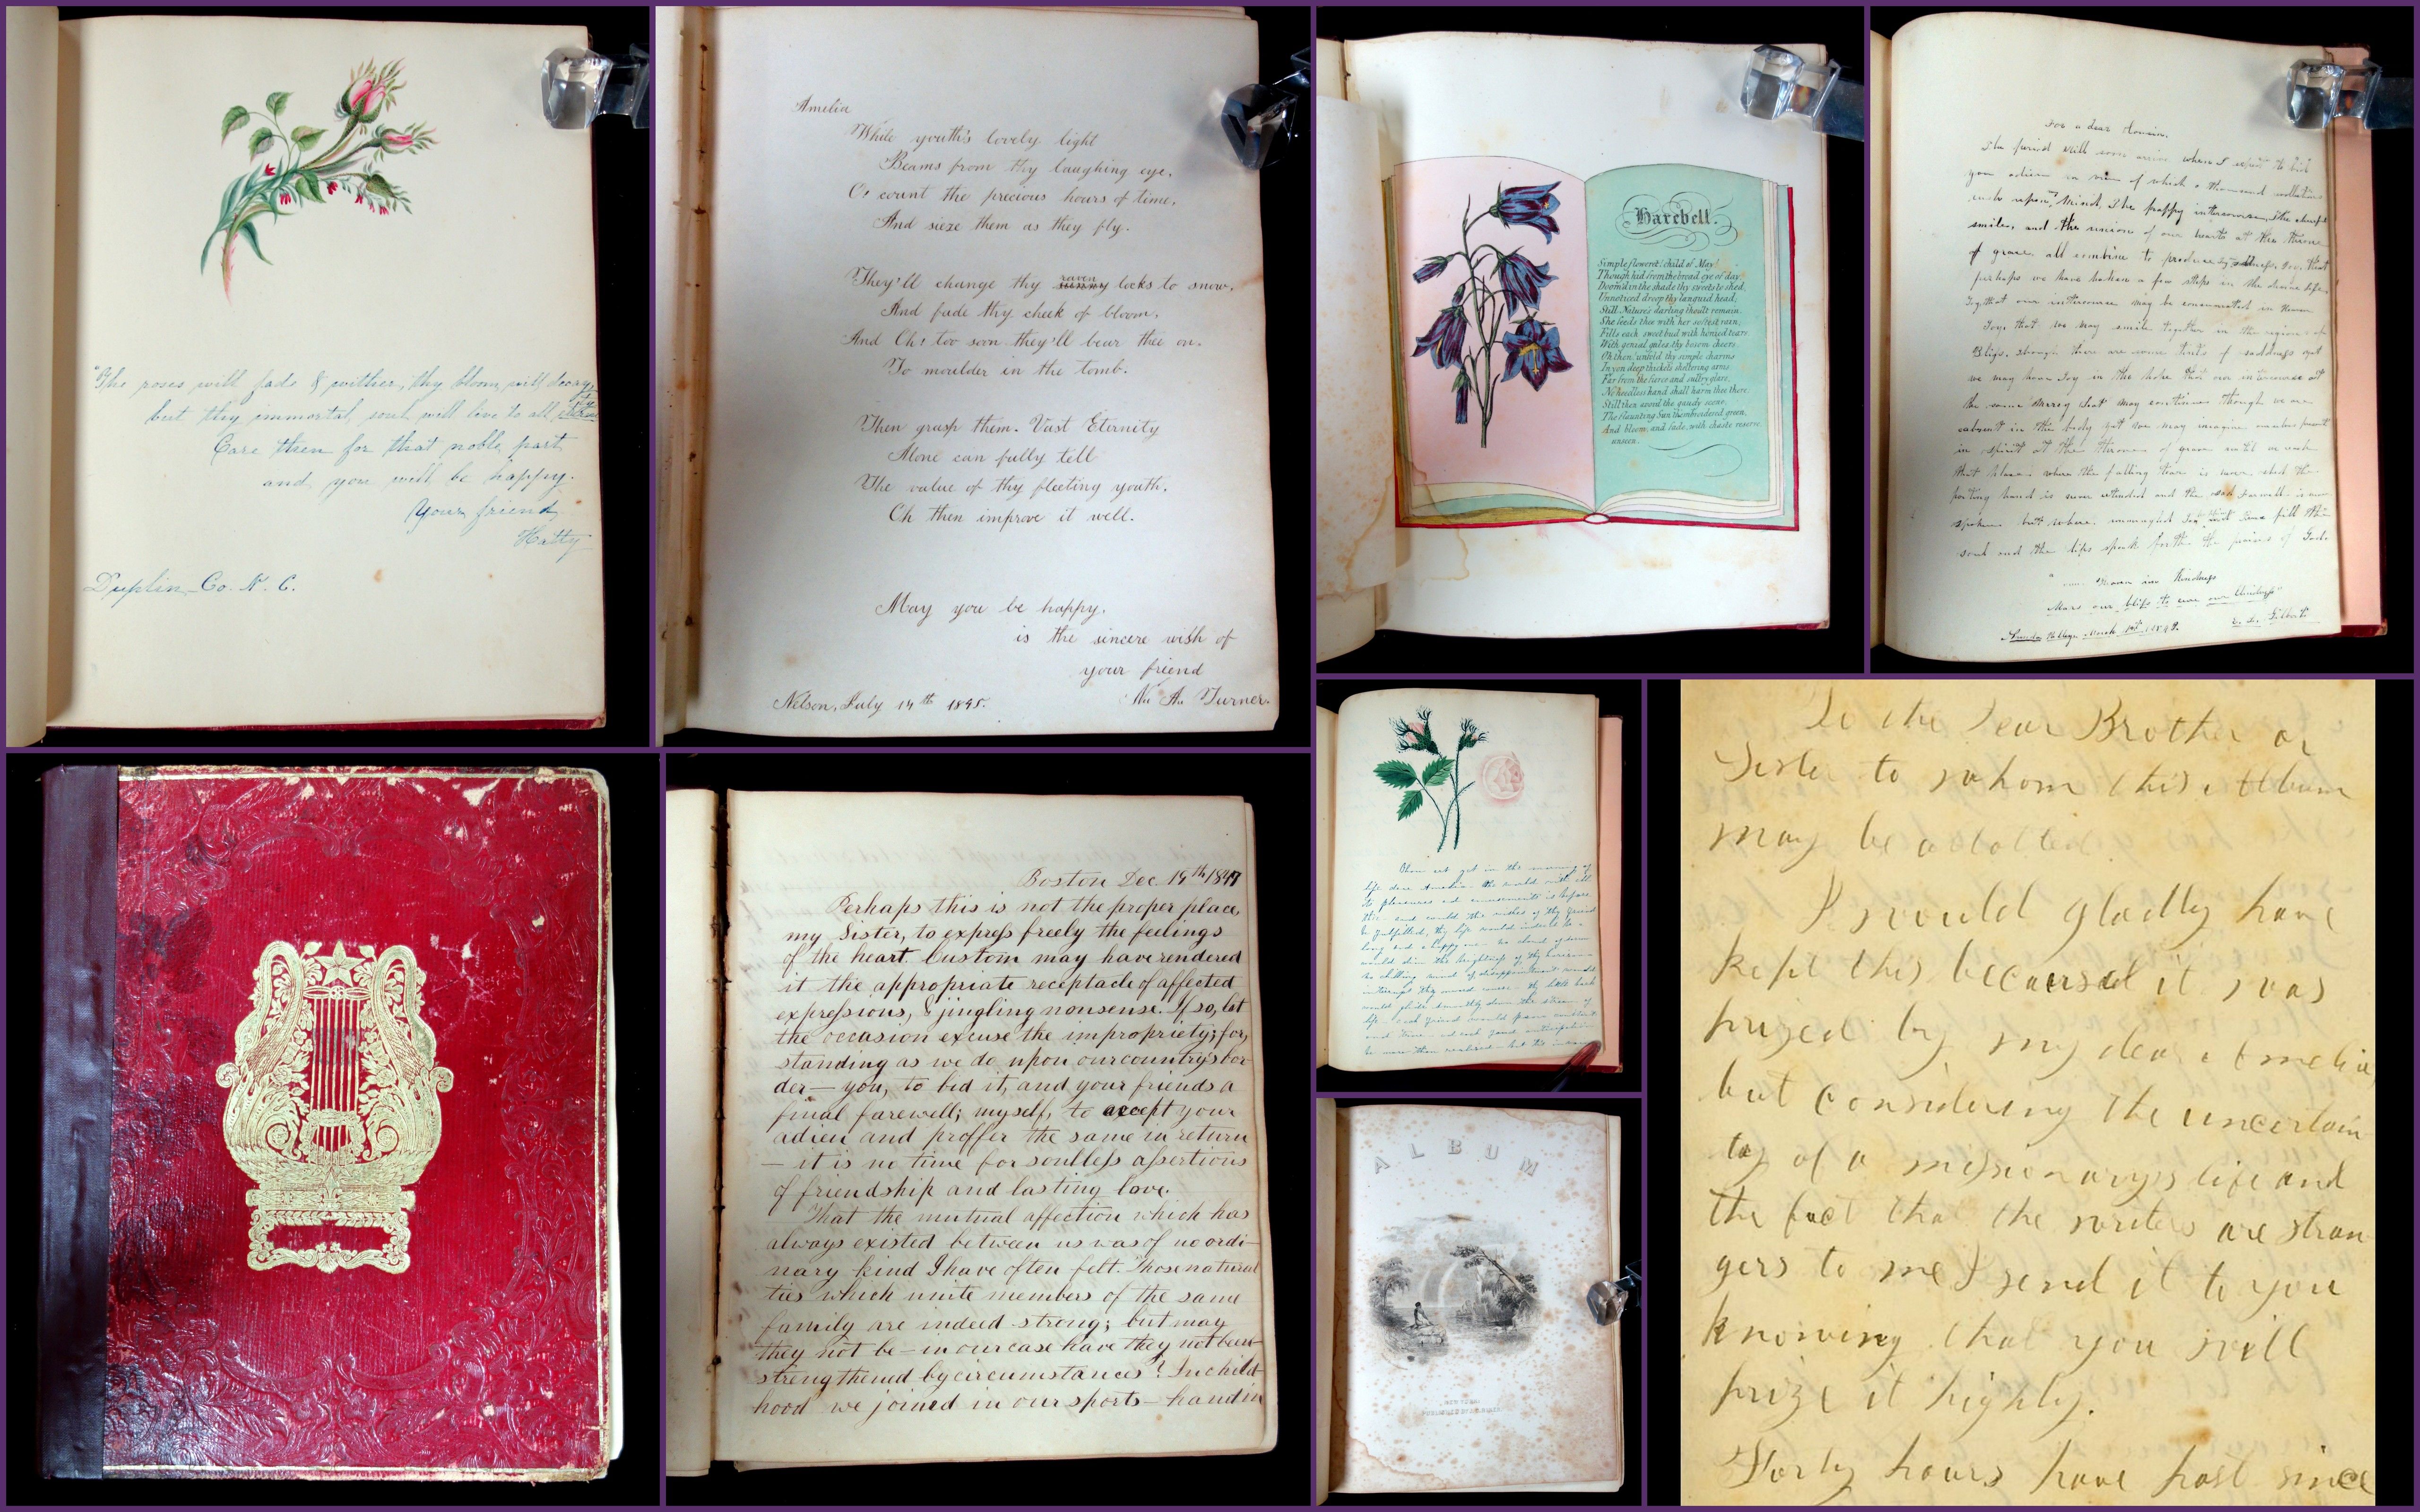 "The roses will fade & wither, thy bloom will decay,
but thy immortal soul will live to all
Care then for that noble part
and you will be happy.
Your friend
Hatty
Duplin Co. N. C.
Amelia
While youth's lovely light
Beams from thy laughing eye,
O! count the precious hours of time,
And sieze them as they fly.
They'll change thy raven locks to snow,
And fade thy cheek of bloom,
And Oh! too soon they'll bear thee on,
To moulder in the tomb.
Then grasp them. Vast Eternity
Alone can fully tell
The value of thy fleeting youth,
Oh then improve it well.
May you be happy,
is the sincere wish of
your friend
Turner.
Nelson, July 14th
Harebell.
Simple floweret! child of May!
Though hid from the broad eye of day
Doom'd in the shade thy sweets to shed,
Unnoticed droop thy languid head,
Still Nature's darling thou'lt remain.
She feeds thee with her softest rain,
Fills each sweet bud with honied tears
With genial gales thy bosom cheers
Oh then, unfold thy simple charms
In yon deep thickets sheltering arms
Far from the fierce and sultry glare,
No heedless hand shall harm thee there.
Still then avoid the gaudy scene,
The flaunting Sun th'embroidered green,
And bloom, and fade, with chaste reserve,
unseen.
For a dear Cousin,
The period will soon arrive when I expect to bid
you adieu in view of which a thousand
rush upon my mind, The happy intercourse, the cheerful
smile, and the union of our hearts at the throne
of grace, all combine to produce Joy that
perhaps we have taken a few steps in the divine life,
Joy that our intercourse may be consummated in Heaven
Joy, that we may smile together in the regions of
Bliss, though there are some tints of saddness yet
we may have Joy in the hope that our intercourse at
the same Mercy Seat may continue though we are
absent in the body yet we may imagine ourselves present
in spirit at the throne of grace until we reach
that place where the falling tear is never shed the
parting hand is never extended and the sad farewell is never
spoken but where unmingled Joy and Love fill the
soul and the lips speak forth the praises of God.
March 1st 1848.
Boston Dec. 19th 1847
Perhaps this is not the proper place,
my Sister, to express freely the feelings
of the heart. Custom may have rendered
it the appropriate receptacle of affected
expressions, & jingling nonsense. If so, let
the occasion excuse the impropriety; for,
standing as we do, upon our country's bor-
der— you, to bid it, and your friends a
final farewell; myself, to accept your
adieu and proffer the same in return
— it is no time for soulless assertions
of friendship and lasting love.
That the mutual affection which has
always existed between us was of no ordi-
nary kind I have often felt. Those natural
ties which unite members of the same
family are indeed strong; but may
they not be—in our case have they not been
strengthened by circumstances? In child-
hood we joined in our sports—hand in
Thou art yet in the morning of
life, dear Amelia. The world with all
its pleasures and amusements is before
thee and could the wishes of thy friend
be fulfilled, thy life would indeed be a
long and a happy one. No cloud of
would dim the brightness of thy horizon
no chilling wind of disappointment would
thy little bark
would glide smoothly down the stream of
life each friend would prove constant
and true and each fond anticipation
be more than realized but this
ALBUM
NEW YORK
To the Dear Brother or
Sister to whom this Album
may be allotted.
I would gladly have
kept this because it was
prized by my dear Amelia,
but considering the uncertain
ty of a missionary's life and
the fact that the writers are stran
gers to me I send it to you
knowing that you will
prize it highly.
Forty hours have past since